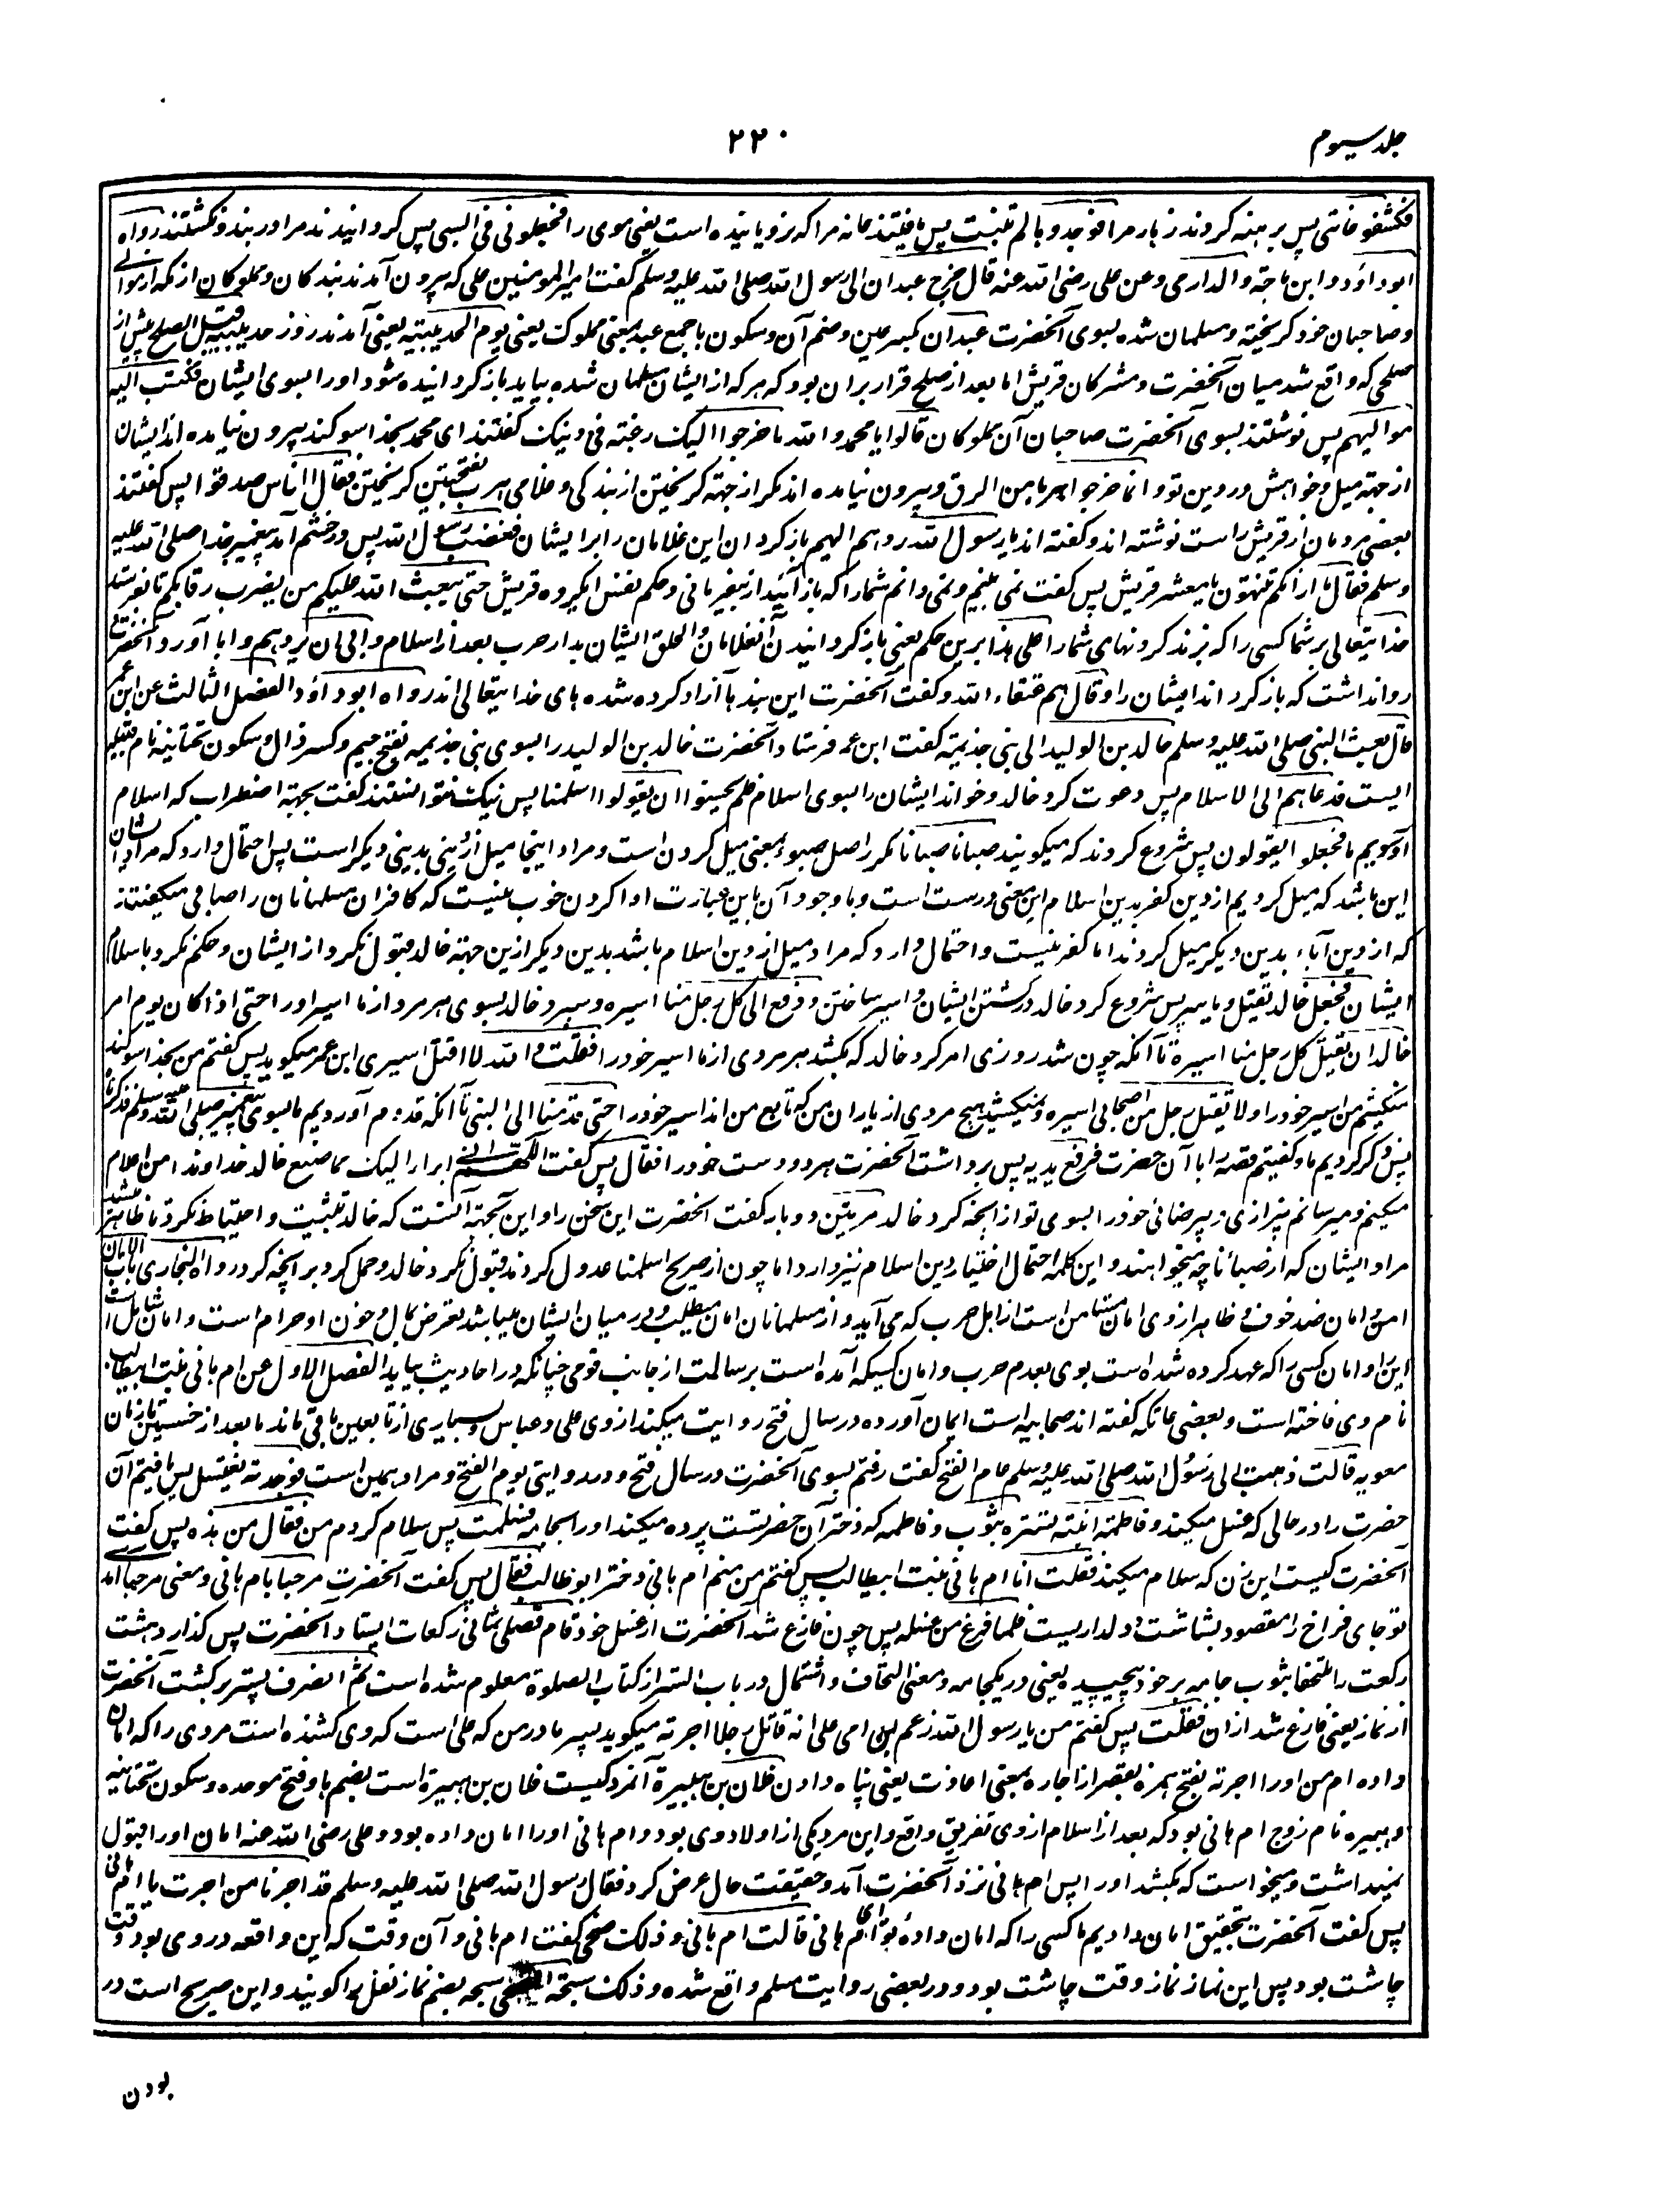 جلد سیوم
۲۲۰
فکشفوا عانتی پس برهنه کردند زهار مرا فوجدوها لم تنبت پس یافتند عانه مرا که نرویانیده است یعنی موی را فجعلونی فی السبی پس گردانیدند مرا در بند و نکشتند رواه
ابوداؤد و ابن ماجة و الدارمی و عن علی رضی الله عنه قال خرج عبدان الی رسول الله صلی الله علیه و سلم گفت امیر المومنین علی که بیرون آمدند بندگان و مملوکان از مکه از موالی
و صاحبان خود گریخته و مسلمان شده بسوی آنحضرت عبدان بکسر عین و ضم آن و سکون با جمع عبد بمعنی مملوک یعنی یوم الحدیبیة یعنی آمدند روز حدیبیه قبل الصلح پیش از
صلحی که واقع شد میان آنحضرت و مشرکان قریش اما بعد از صلح قرار بران بود که هر که از ایشان مسلمان شده بیاید باز گردانیده شود او را بسوی ایشان فکتب الیه
موالیهم پس نوشتند بسوی آنحضرت صاحبان آن مملوکان قالوا یا محمد و الله ما خرجوا الیک رغبة فی دینک گفتند ای محمد بخدا سوگند بیرون نیامده اند ایشان
از جهته میل و خواهش در دین تو و انما خرجوا هربا من الرق و بیرون نیامده اند مگر از جهته گریختن از بندگی و غلامی هرب بفتحتین گریختن فقال اناس صدقوا پس گفتند
بعضی مردمان از قریش راست نوشته اند و گفته اند یا رسول الله ردهم الیهم باز گردان این غلامان را بر ایشان فغضب رسول الله پس در خشم آمد پیغمبر خدا صلی الله علیه
و سلم فقال ما اراکم تنتهون یا معشر قریش پس گفت نمی بینم و نمی دانم شما را که باز آئید از نافرمانی و حکم نفس ای گروه قریش حتی یبعث الله علیکم من یضرب رقابکم تا بفرستد
خدا یتعالی بر شما کسی را که بزند گردنهای شما را علی هذا برین حکم یعنی باز گردانیدن آنغلامان و الحاق ایشان بدار حرب بعد از اسلام و ابی ان یردهم و ابا آورد آنحضرت یعنی
روا نداشت که باز گرداند ایشان را و قال هم عتقاء الله و گفت آنحضرت این بندها آزاد کرده شده های خدا یتعالی اند رواه ابوداؤد الفصل الثالث عن ابن عمر
قال بعث النبی صلی الله علیه و سلم خالد بن الولید الی بنی جذیمة گفت ابن عمر فرستاد آنحضرت خالد بن الولید را بسوی بنی جذیمه بفتح جیم و کسر ذال و سکون تحتانیه نام قبیله
ایست فدعاهم الی الاسلام پس دعوت کرد خالد و خواند ایشان را بسوی اسلام فلم یحسنوا ان یقولوا اسلمنا پس نیک نتوانستند گفت بجهته اضطراب که اسلام
آوردیم ما فجعلوا یقولون پس شروع کردند که میگویند صبانا صبانا مکرر اصل صبوء بمعنی میل کردن است و مراد اینجا میل از دینی بدینی دیگر است پس احتمال دارد که مراد ایشان
این باشد که میل کردیم از دین کفر بدین اسلام این معنی درست است و با وجود آن باین عبارت ادا کردن خوب نیست که کافران مسلمانان را صابی میگفتند
که از دین آباء بدین دیگر میل کردند اما کفر نیست و احتمال دارد که مراد میل از دین اسلام باشد بدین دیگر ازین جهته خالد قبول نکرد از ایشان و حکم نکرد باسلام
ایشان فجعل خالد یقتل و یاسر پس شروع کرد خالد در کشتن ایشان و اسیر ساختن و دفع الی کل رجل منا اسیره و سپرد خالد بسوی هر مرد از ما اسیر او را حتی اذا کان یوم امر
خالد ان یقتل کل رجل منا اسیرة تا آنکه چون شد روزی امر کرد خالد که بکشد هر مردی از ما اسیر خود را فقلت و الله لا اقتل اسیری ابن عمر میگوید پس گفتم من بخدا سوگند
نمیکشم من اسیر خود را و لا یقتل رجل من اصحابی اسیره و نمیکشد هیچ مردی از یاران من که تابع من اند اسیر خود را حتی قدمنا الی النبی تا آنکه قدوم آوردیم ما بسوی پیغمبر صلی الله علیه و سلم فذکرناه
پس ذکر کردیم ما و گفتیم قصه را با آن حضرت فرفع یدیه پس برداشت آنحضرت هر دو دست خود را فقال پس گفت اللهم انی ابرأ الیک مما صنع خالد خداوندا من اعلام
میکنم و میرسانم بیزاری و بیرضائی خود را بسوی تو از آنچه کرد خالد مرتین دو بار گفت آنحضرت این سخن را و این بجهته آنست که خالد تثبت و احتیاط نکرد تا ظاهر میشد
مراد ایشان که از صبأنا چه میخواهند و این کلمه احتمال اختیار دین اسلام نیز دارد اما چون از صریح اسلمنا عدول کردند قبول نکرد خالد و حمل کرد بر آنچه کرد رواه البخاری باب الامان
امن و امان ضد خوف و ظاهر از وی امان مستامن است از اهل حرب که می آید و از مسلمانان امان میطلبد و در میان ایشان میباشد تعرض بمال و خون او حرام است و امان شامل است
این را و امان کسی را که عهد کرده شده است بوی بعدم حرب و امان کسیکه آمده است برسالت از جانب قومی چنانکه در احادیث بیاید الفصل الاول عن ام هانی بنت ابیطالب
نام وی فاخته است و بعضی عاتکه گفته اند صحابیه است ایمان آورده در سال فتح روایت میکند از وی علی و عباس و بسیاری از تابعین باقی ماند ما بعد از خمسین تا زمان
معویه قالت ذهبت الی رسول الله صلی الله علیه و سلم عام الفتح گفت رفتم بسوی آنحضرت در سال فتح و در روایتی یوم الفتح و مراد همین است فوجدته یغتسل پس یافتم آن
حضرت را در حالی که غسل میکند و فاطمة ابنته تستره بثوب و فاطمه که دختر آن حضرتست پرده میکند او را بجامه فسلمت پس سلام کردم من فقال من هذه پس گفت
آنحضرت کیست این زن که سلام میکند فقلت انا ام هانی بنت ابیطالب پس گفتم من منم ام هانی دختر ابو طالب فقال پس گفت آنحضرت مرحبا بام هانی و معنی مرحبا آمدی
تو جای فراخ را مقصود بشاشت و دلداریست فلما فرغ من غسله پس چون فارغ شد آنحضرت از غسل خود قام فصلی ثمانی رکعات ایستاد آنحضرت پس گذارد هشت
رکعت را ملتحفا بثوب جامه بر خود پیچیده یعنی در یکجامه و معنی التحاف و اشتمال در باب الستر از کتاب الصلوة معلوم شده است ثم انصرف پستر برگشت آنحضرت
از نماز یعنی فارغ شد ازان فقلت پس گفتم من یا رسول الله زعم ابن امی علی انه قاتل رجلا اجرته میگوید پسر مادر من که علی است که وی کشنده است مردی را که امان
داده ام من او را اجرته بفتح همزه بقصر از اجاره بمعنی اعاذت یعنی پناه دادن فلان بن هبیرة آنمرد کیست فلان بن هبیرة است بضم ها و فتح موحده و سکون تحتانیه
و هبیره نام زوج ام هانی بود که بعد از اسلام از وی تفریق واقع و این مرد یکی از اولاد وی بود و ام هانی او را امان داده بود و علی رضی الله عنه امان او را قبول
نمیداشت و میخواست که بکشد او را پس ام هانی نزد آنحضرت آمد و حقیقت حال عرض کرد فقال رسول الله صلی الله علیه و سلم قد اجرنا من اجرت یا ام هانی
پس گفت آنحضرت بتحقیق امان دادیم ما کسی را که امان دادهٔ تو ای ام هانی قالت ام هانی و ذلک ضحی گفت ام هانی و آن وقت که این واقعه در وی بود وقت
چاشت بود پس این نماز نماز وقت چاشت بود و در بعضی روایت مسلم واقع شده و ذلک سبحة الضحی سبحه بضم نماز نفل را گویند و این صریح است در
بودن